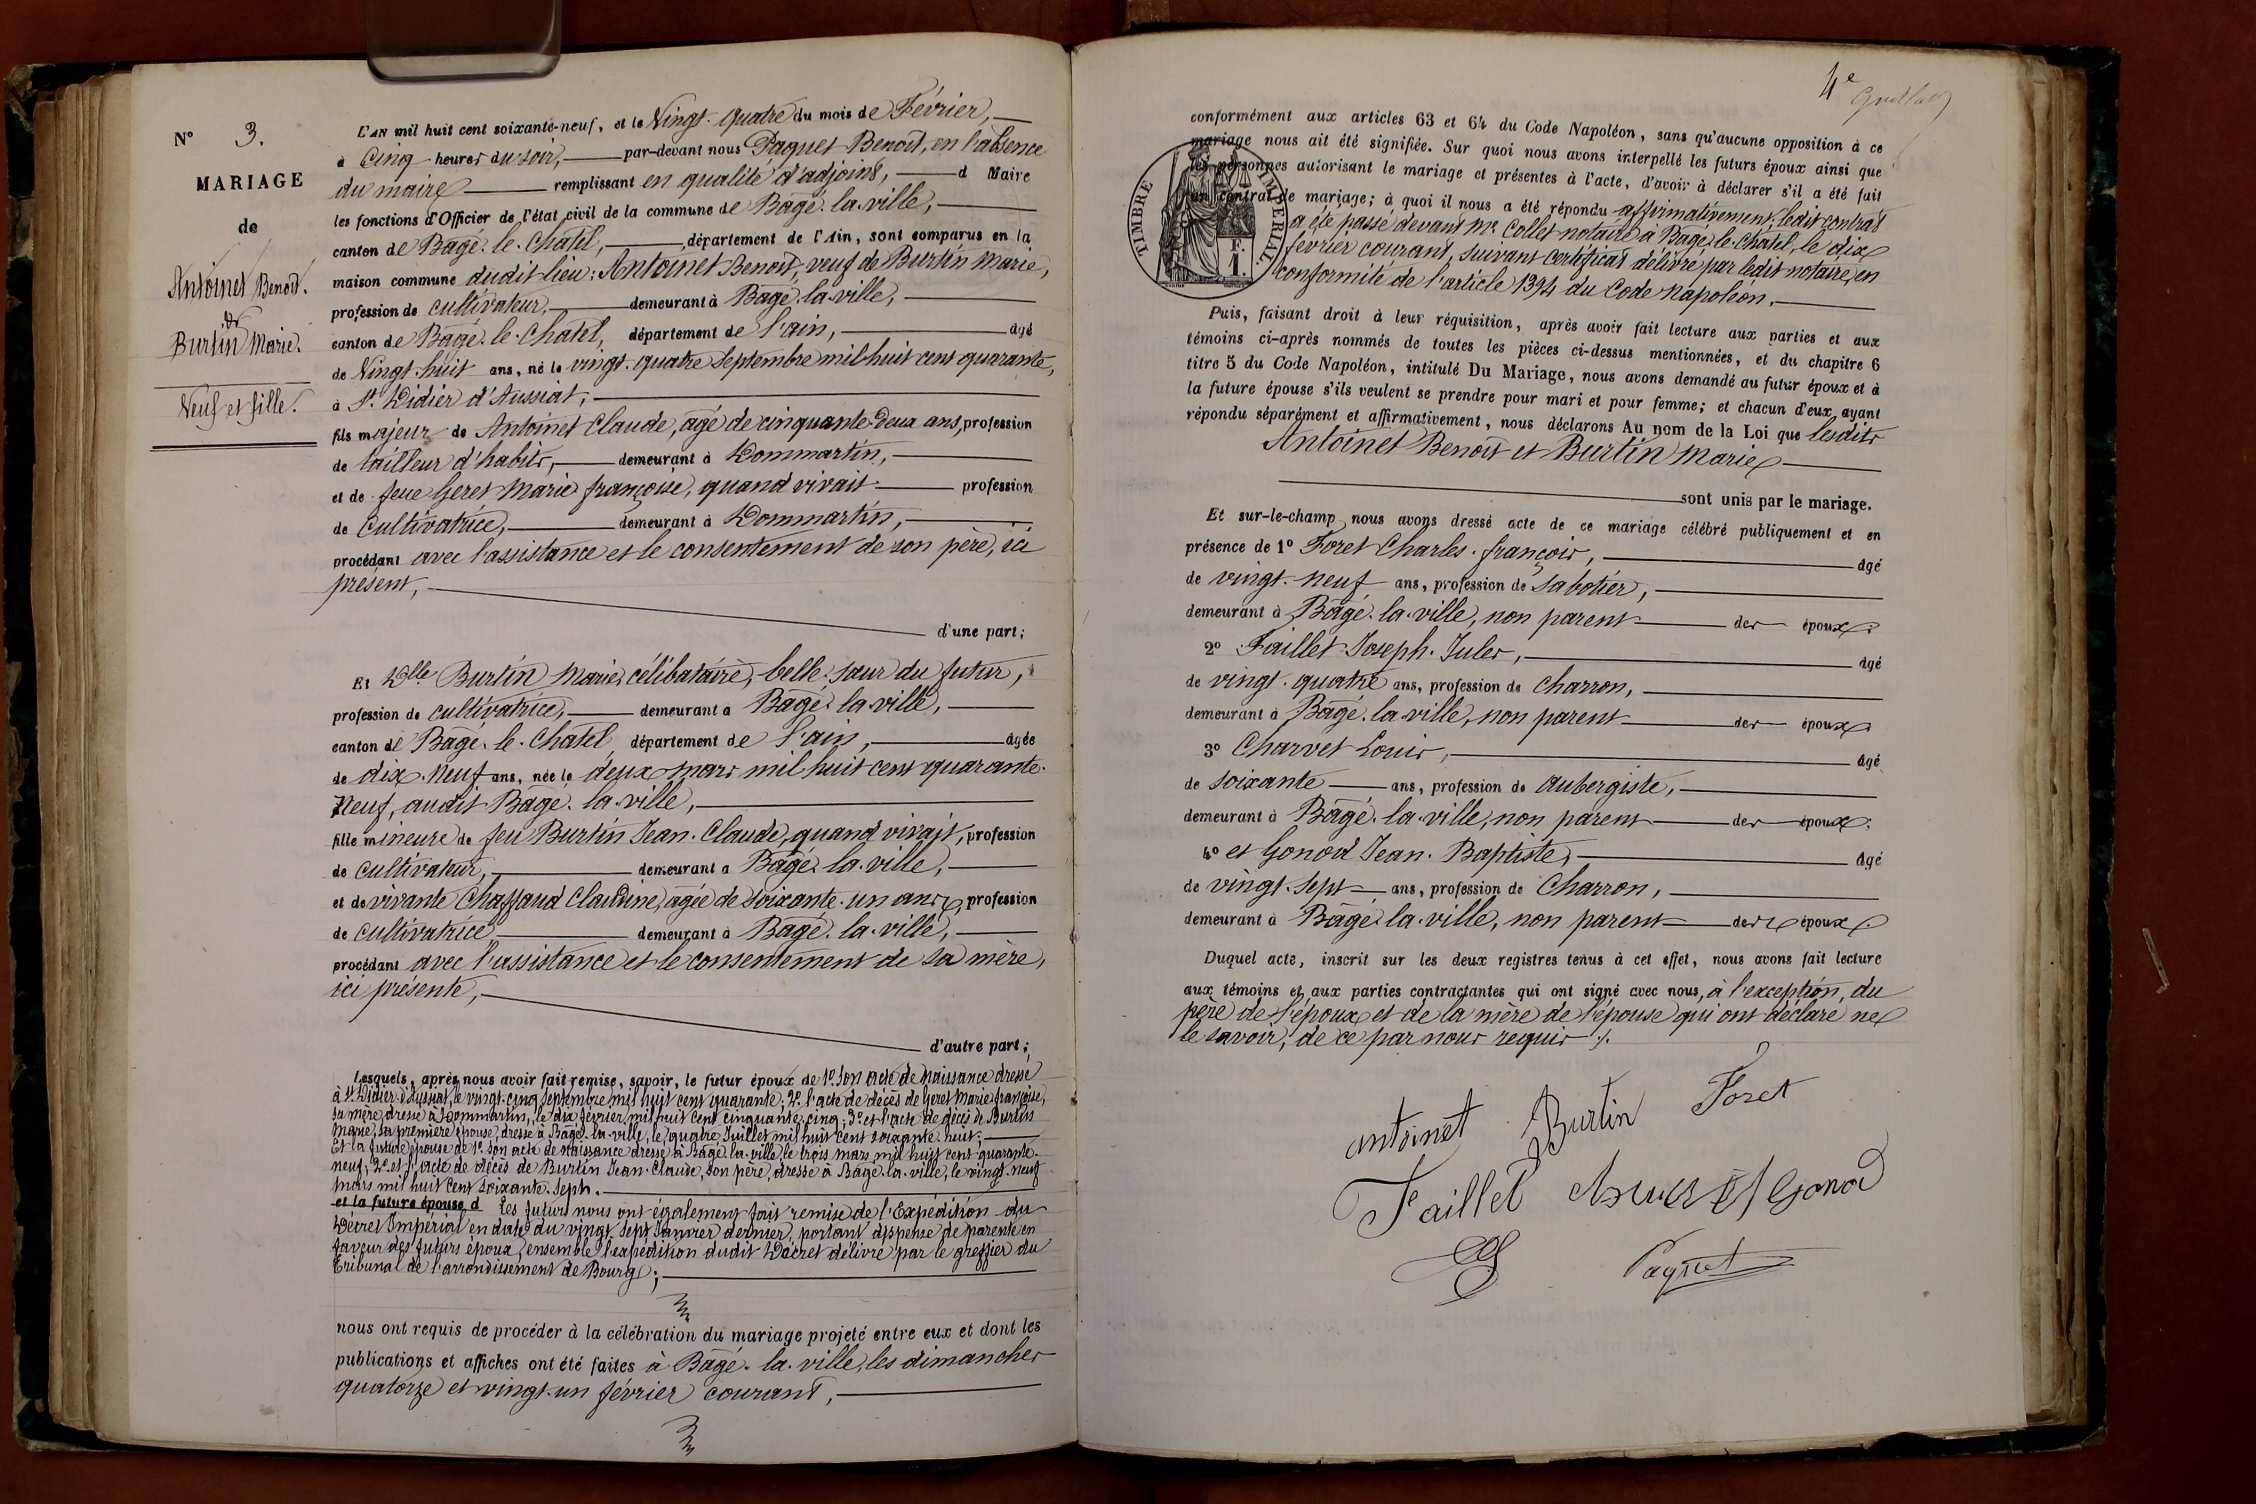 N° 3.
MARIAGE
de
Antoinet Benoît.
&
Burtin Marie.
Veuf et fille.
L'AN mil huit cent soixante-neuf, et le Vingt-quatre du mois de Février,
à Cinq heures du soir, par-devant nous Paquet Benoît, en l'absence
du maire remplissant en qualité d'adjoint, d Maire
les fonctions d'Officier de l'état civil de la commune de Bâgé-la-ville,
canton de Bâgé-le-Châtel, département de l'Ain, sont comparus en la
maison commune dudit lieu: Antoinet Benoît, veuf de Burtin Marie,
profession de cultivateur, demeurant à Bâgé-la-ville,
canton de Bâgé-le-Châtel, département de l'ain, âgé
de Vingt-huit ans, né le vingt-quatre Septembre mil huit cent quarante,
à St. Didier d'Aussiat,
fils majeur de Antoinet Claude, âgé de cinquante-Deux ans, profession
de tailleur d'habits, demeurant à Dommartin,
et de feue Geret Marie françoise, quand vivait profession
de Cultivatrice, demeurant à Dommartin,
procédant avec l'assistance et le consentement de son père, ici
présent,
d'une part;
Et Dlle Burtin Marie, célibataire, belle-sœur du futur,
profession de cultivatrice, demeurant à Bâgé-la-ville,
canton de Bâgé-le-Châtel département de l'ain, âgée
de dix-neuf ans, née le deux mars mil huit cent quarante-
neuf, audit Bâgé-la-ville,
fille mineure de feu Burtin Jean-Claude, quand vivait, profession
de cultivateur, demeurant à Bâgé-la-ville,
et de vivante Chaffaud Claudine, âgée de soixante-un ans, profession
de cultivatrice demeurant à Bâgé-la-ville,
procédant avec l'assistance et le consentement de sa mère,
ici présente,
d'autre part;
Lesquels, après nous avoir fait remise, savoir, le futur époux de 1° son acte de naissance dressé
à St. Didier-d'Aussiat, le vingt-cinq Septembre mil huit cent quarante; 2° l'acte de décès de Geret Marie françoise,
sa mère, dressé à Dommartin, le dix février mil huit cent cinquante-cinq; 3° et l'acte de décès de Burtin
Marie, sa première épouse, dressé à Bâgé-la-ville, le quatre Juillet mil huit cent soixante-huit;
Et la future épouse de 1° son acte de naissance dressé à Bâgé-la-ville, le trois mars mil huit cent quarante-
neuf; 2° et l'acte de décès de Burtin Jean-Claude, son père, dressé à Bâgé-la-ville, le vingt-neuf
mars mil huit cent soixante-sept.
et la future épouse d Les futurs nous ont également fait remise de l'Expédition du
Décret Impérial en date du vingt-sept Janvier dernier, portant dispense de parenté en
faveur des futurs époux, ensemble l'expédition dudit Décret délivré par le greffier du
Tribunal de l'arrondissement de Bourg;
nous ont requis de procéder à la célébration du mariage projeté entre eux et dont les
publications et affiches ont été faites à Bâgé-la-ville, les dimanches
quatorze et vingt-un février courant,
4e
conformément aux articles 63 et 64 du Code Napoléon, sans qu'aucune opposition à ce
mariage nous ait été signifiée. Sur quoi nous avons interpellé les futurs époux ainsi que
les personnes autorisant le mariage et présentes à l'acte, d'avoir à déclarer s'il a été fait
un contrat de mariage; à quoi il nous a été répondu affirmativement, ledit contrat
a été passé devant Me Collet notaire à Bâgé-le-Châtel, le dix
février courant, suivant certificat délivré par ledit notaire, en
conformité de l'article 1394 du Code Napoléon.
TIMBRE IMPERIAL.
F.
1.
Puis, faisant droit à leur réquisition, après avoir fait lecture aux parties et aux
témoins ci-après nommés de toutes les pièces ci-dessus mentionnées, et du chapitre 6
titre 5 du Code Napoléon, intitulé Du Mariage, nous avons demandé au futur époux et à
la future épouse s'ils veulent se prendre pour mari et pour femme; et chacun d'eux ayant
répondu séparément et affirmativement, nous déclarons Au nom de la Loi que lesdits
Antoinet Benoît et Burtin Marie
sont unis par le mariage.
Et sur-le-champ nous avons dressé acte de ce mariage célébré publiquement et en
présence de 1° Foret Charles-françois, âgé
de vingt-neuf ans, profession de sabotier,
demeurant à Bâgé-la-ville, non parent des époux;
2° Faillet Joseph-Jules, âgé
de vingt-quatre ans, profession de charron,
demeurant à Bâgé-la-ville, non parent des époux;
3° Charvet Louis, âgé
de soixante ans, profession de aubergiste,
demeurant à Bâgé-la-ville, non parent des époux;
4° et Gonod Jean-Baptiste, âgé
de vingt-sept ans, profession de Charron,
demeurant à Bâgé-la-ville, non parent des époux.
Duquel acte, inscrit sur les deux registres tenus à cet effet, nous avons fait lecture
aux témoins et aux parties contractantes qui ont signé avec nous, à l'exception, du
père de l'époux et de la mère de l'épouse qui ont déclaré ne
le savoir, de ce par nous requis ./.
antoinet Burtin Foret
Faillet Gonod
Paquet